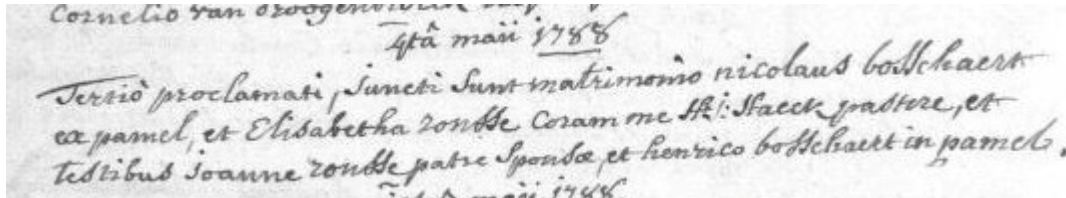 Cornelio van
4tâ maii 1788
Tertiò proclamati, juncti sunt matrimonio nicolaus bosschaert
ex pamel, et Elisabetha rousse Coram me Staeck pastore, et
testibus joanne rousse patre Sponsæ, et henrico bosschaert in pamel.
maii 1788